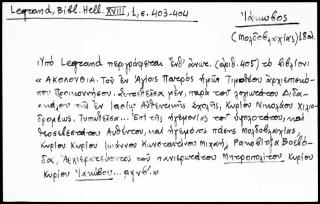 Legrand, Bibl. Hell. XVIII, 1, σ. 403-404
Ἰάκωβος
(Μολδοβλαχίας) 18αι.
Ὑπὸ Legrand περιγράφεται ἔνθ' ἀνωτ. (ἀριθ. 405) τὸ βιβλίον:
« ΑΚΟΛΟΥΘΙΑ. Τοῦ ἐν Ἁγίοις Πατρὸς ἡμῶν Τιμοθέου ἀρχιεπισκό-
που Προικοννήσου. Συντεθεῖσα μὲν, παρὰ τοῦ λογιωτάτου Διδα-
σκάλου τῆς ἐν Ἰασίῳ Αὐθεντικῆς Σχολῆς, Κυρίου Νικολάου
Τυπωθεῖσα... Ἐπὶ τῆς ἡγεμονίας τοῦ ὑψηλοτάτου, καὶ
θεοσεβεστάτου Αὐθέντου, καὶ ἡγεμόνος πάσης Μολδοβλαχίας,
Κυρίου Κυρίου Ἰωάννου Κωνσταντίνου Μιχαὴλ, Ρακοβίτζα Βοεβό-
δα, Ἀρχιερατεύοντος τοῦ πανιερωτάτου Μητροπολίτου Κυρίου
Κυρίου Ἰακώβου...